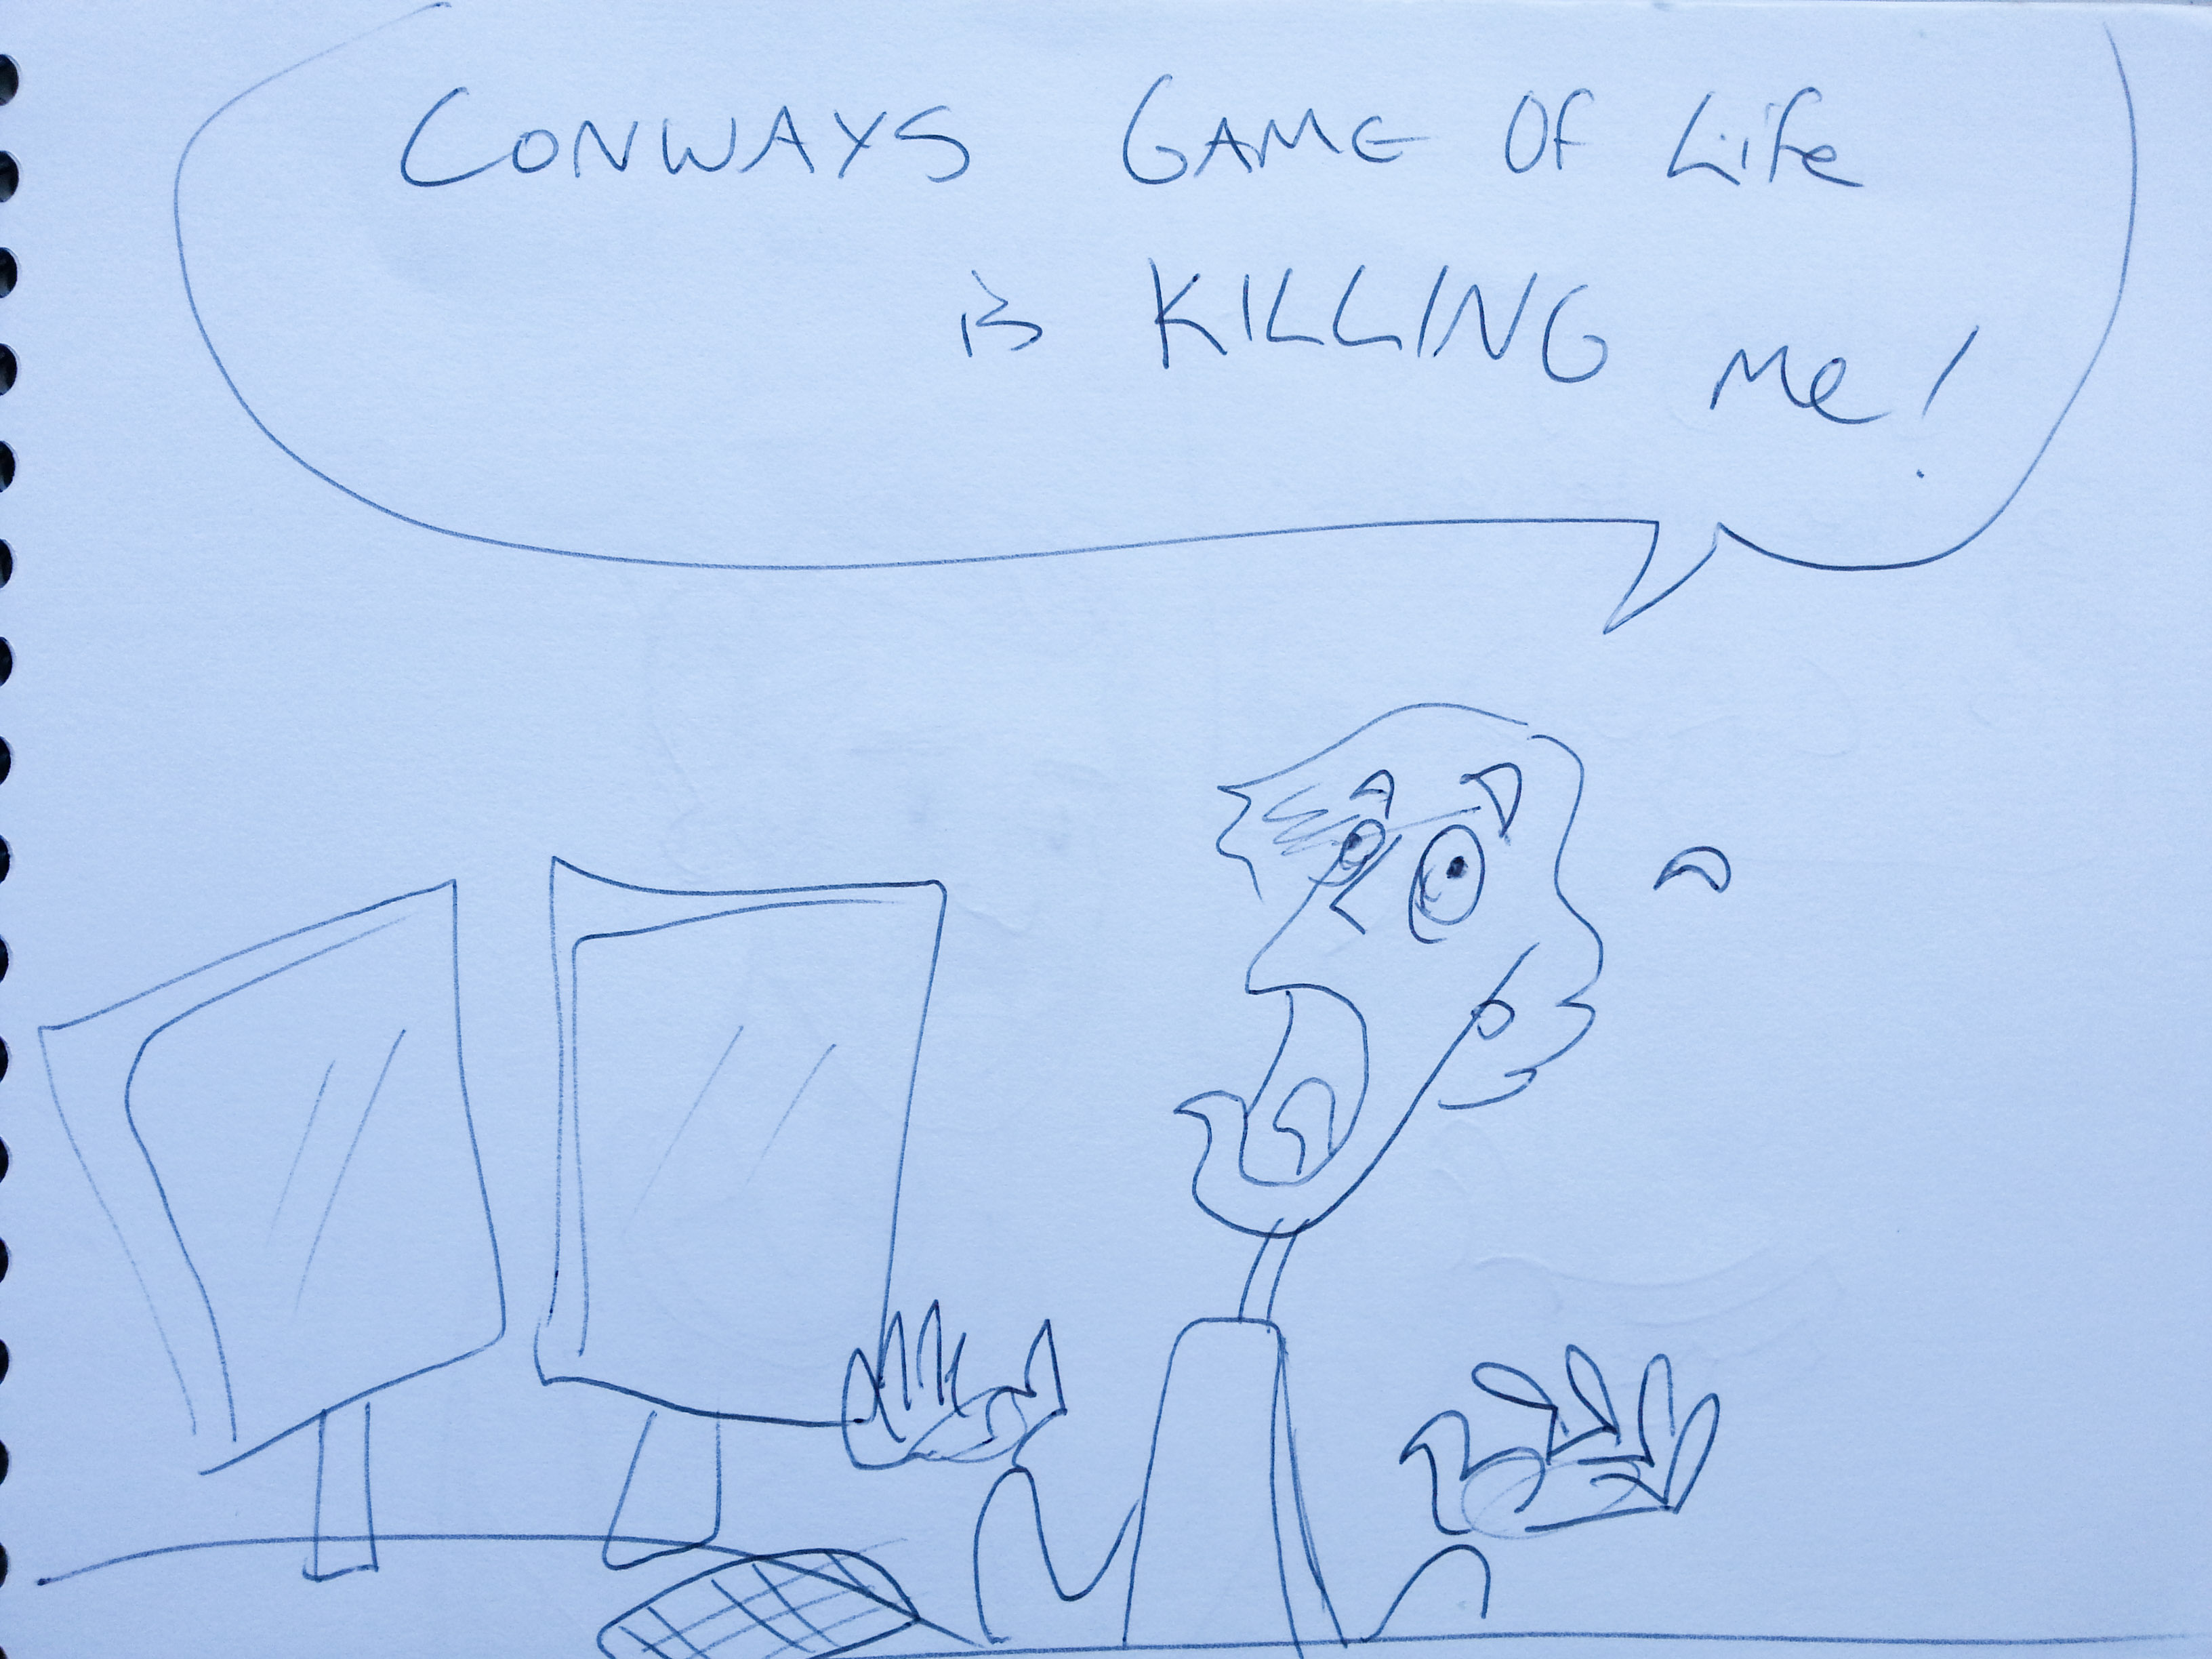 CONWAYS GAME OF Life
is KILLING me!